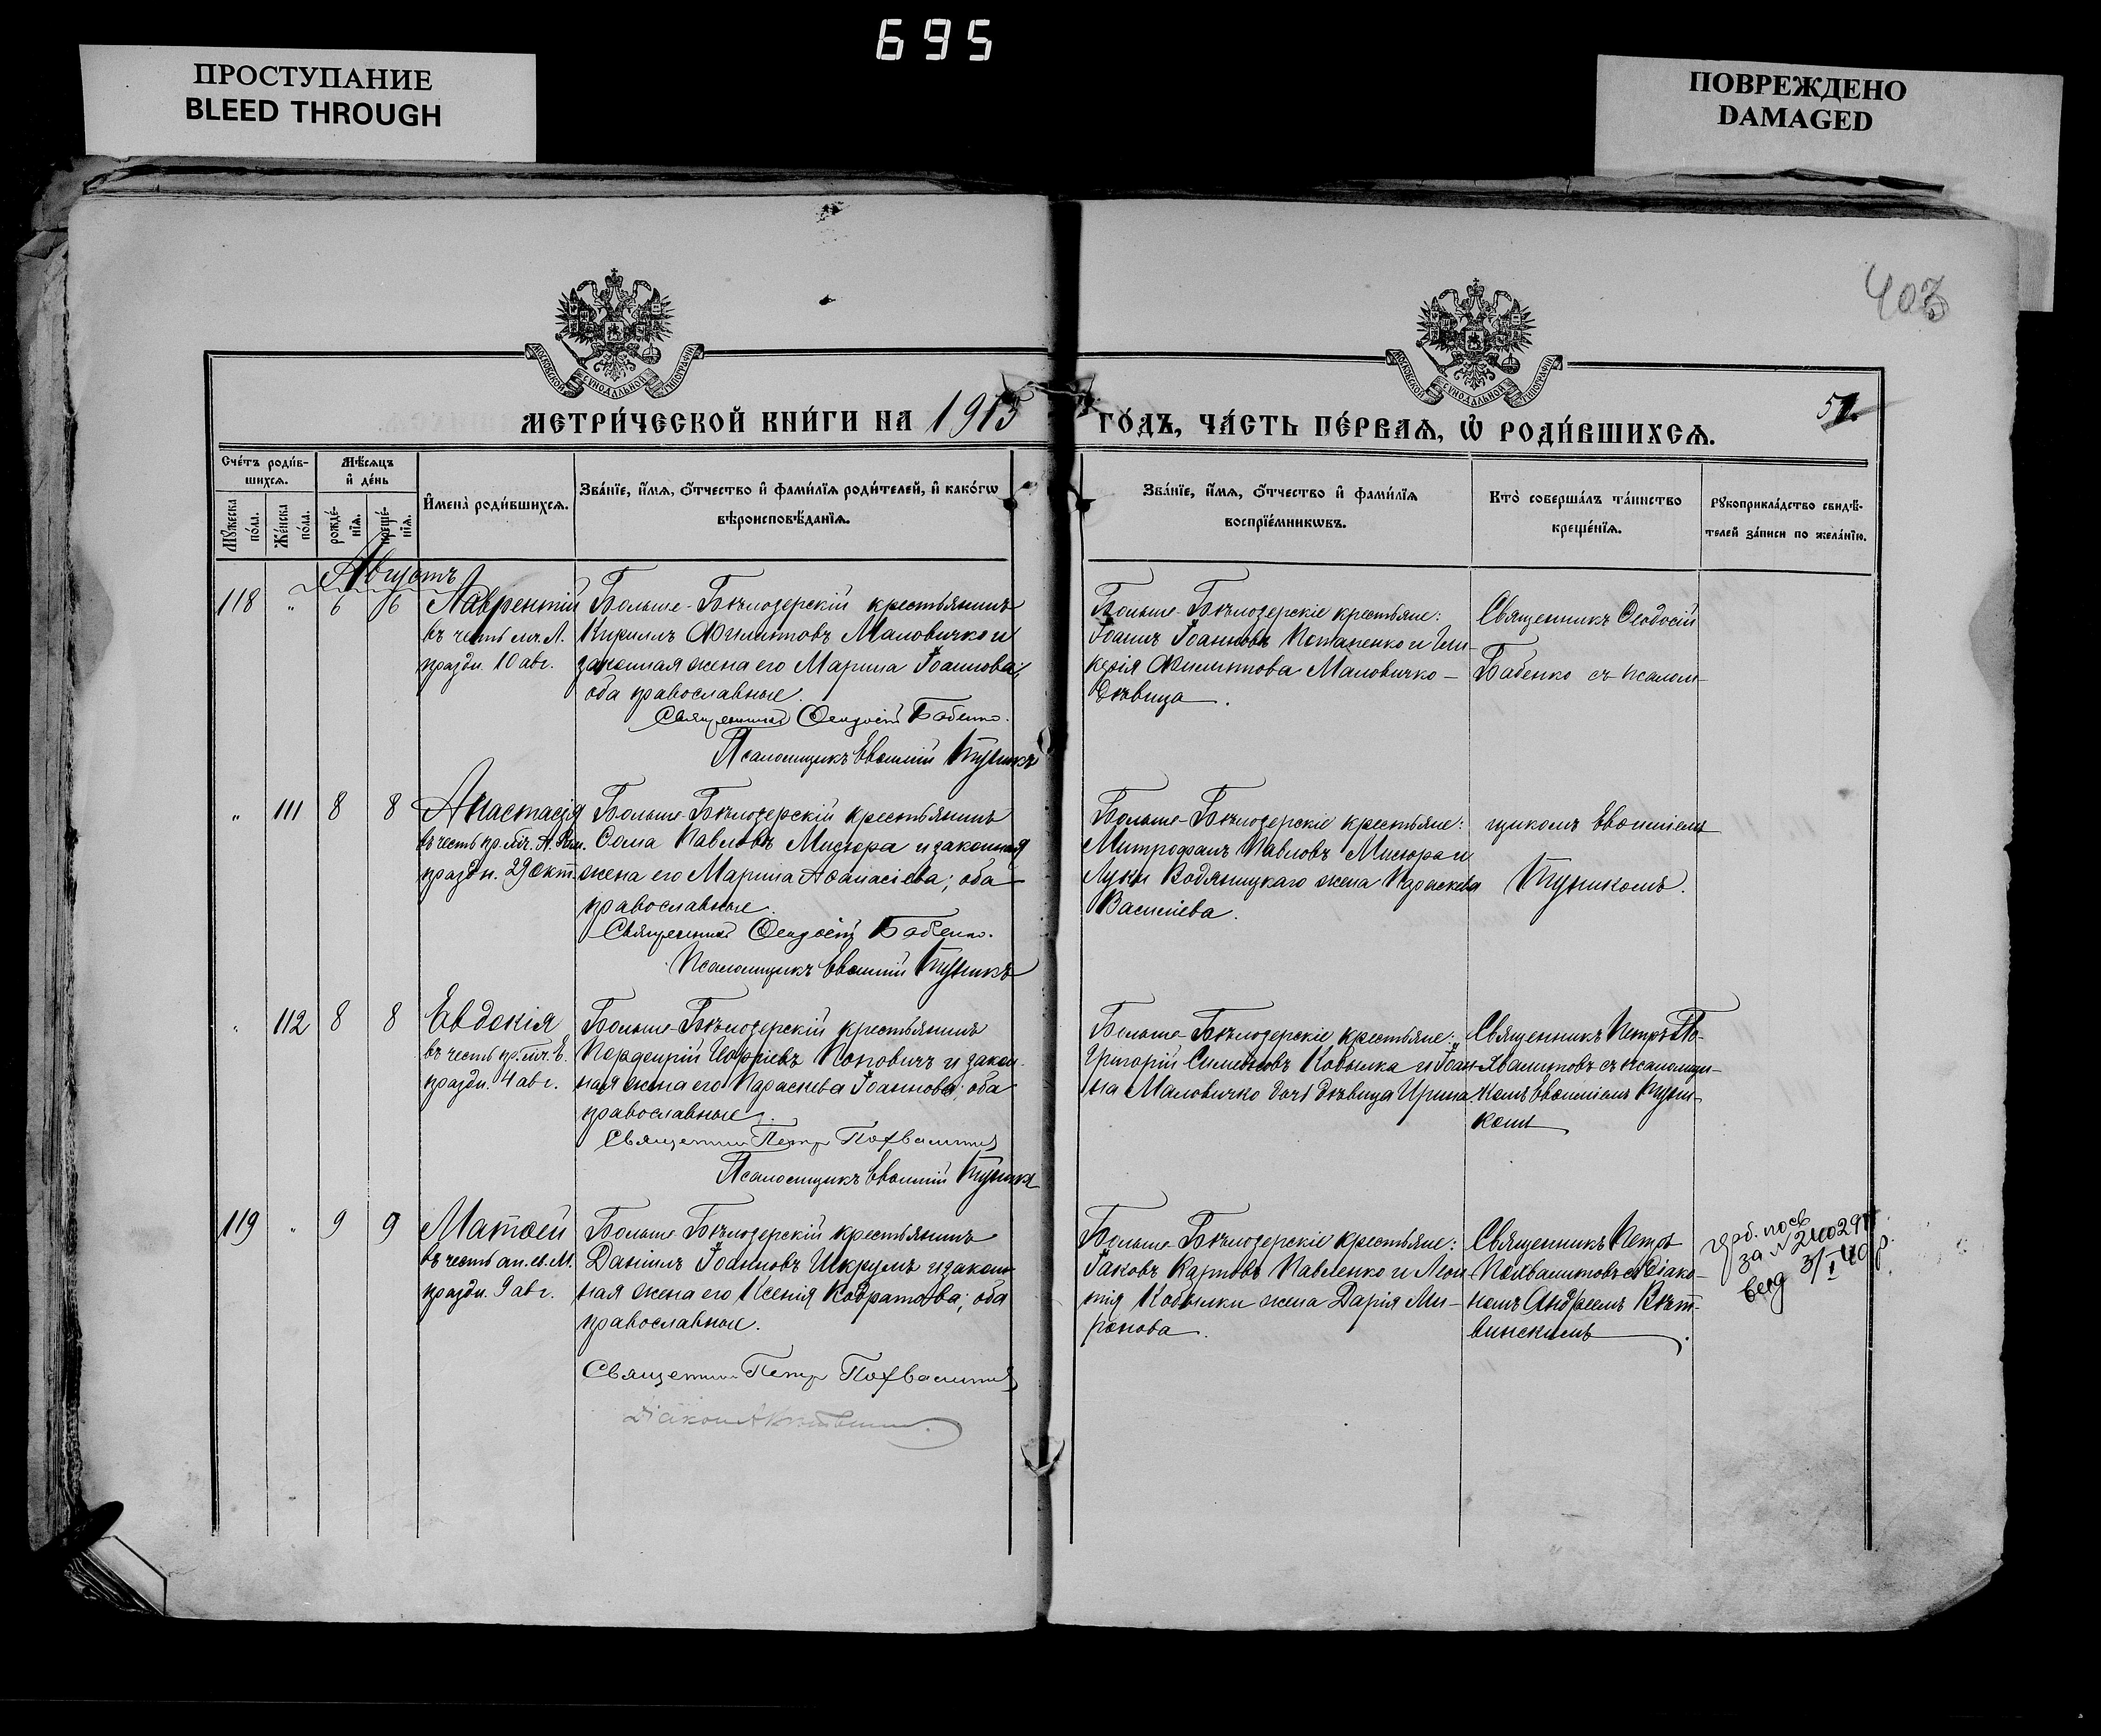 695
ПРОСТУПАНИЕ
BLEED THROUGH
ПОВРЕЖДЕНО
DAMAGED
403
МОСКОВСКОЙ СѴНОДАЛЬНОЙ ТИПОГРАФІИ
МОСКОВСКОЙ СѴНОДАЛЬНОЙ ТИПОГРАФІИ
МЕТРИ́ЧЕСКОЙ КНИ́ГИ НА 1915 ГО́ДЪ, ЧА́СТЬ ПЕ́РВАѦ, Ѡ҆ РОДИ́ВШИХСѦ.
Сче́тъ роди́в-
шихсѧ.
Мѣ́сѧцъ
и҆ де́нь
Мꙋжеска по́ла.
Же́нска по́ла.
рожде́-
нїѧ.
креще́-
нїѧ.
И҆мена̀ роди́вшихсѧ.
Зва́нїе, и҆́мѧ, ѻ҆́тчество и҆ фами́лїѧ роди́телей, и҆ како́гѡ
вѣроисповѣ́данїѧ.
Зва́нїе, и҆́мѧ, ѻ҆́тчество и҆ фами́лїѧ
воспрїе́мникѡвъ.
Кто̀ соверша́лъ та́инство
креще́нїѧ.
Рꙋкоприкла́дство свидѣ́-
телей за́писи по жела́нїю.
Августъ
118 " 6 6
Лаврентій
въ честь мч. Л.
праздн. 10 авг.
Больше-Бѣлозерскій крестьянинъ
Кириллъ Филиповъ Маловичко и
законная жена его Марина Іоаннова;
оба православные.
Священникъ Ѳеодосій Бабенко.
Псаломщикъ Евѳимій
Больше-Бѣлозерскіе крестьяне:
Іоаннъ Іоанновъ Потапенко и Гли-
керія Филиппова Маловичко –
дѣвица.
Священникъ Ѳеодосій
Бабенко съ псалом-
" 111 8 8
Анастасія
въ честь пр. мч. А. Рим.
праздн. 29 окт.
Больше-Бѣлозерскій крестьянинъ
Ѳома Павловъ Мисюра и законная
жена его Марина Аѳанасіева; оба
православные.
Священникъ Ѳеодосій Бабенко.
Псаломщикъ Евѳимій
Больше-Бѣлозерскіе крестьяне:
Митрофанъ Павловъ Мисюра и
Луки Водяницкаго жена Параскева
Василіева.
щикомъ Евѳиміемъ
" 112 8 8
Евдокія
въ честь пр. мч. Е.
праздн. 4 авг.
Больше-Бѣлозерскій крестьянинъ
Попович и закон-
ная жена его Параскева Іоаннова; оба
православные.
Священникъ Петръ Похвалитовъ
Псаломщикъ Евѳимій
Больше-Бѣлозерскіе крестьяне:
Григорій Симеоновъ Кобылка и Іоан-
на Маловичко дочь дѣвица Ирина.
Священникъ Петръ По-
хвалитовъ съ псаломщи-
комъ Евѳиміемъ
комъ
119 " 9 9
Матѳей
въ честь ап. св. М.
праздн. 9 авг.
Больше-Бѣлозерскій крестьянинъ
Даніилъ Іоанновъ Шкрумъ и закон-
ная жена его Ксенія Кодратова; оба
православные.
Священникъ Петръ Похвалитовъ
Діаконъ
Больше-Бѣлозерскіе крестьяне:
Іаковъ Карповъ Павленко и Леон-
тія Кобылки жена Дарія Ми-
ронова.
Священникъ Петръ
Похвалитовъ съ діако-
номъ Андреемъ
за №